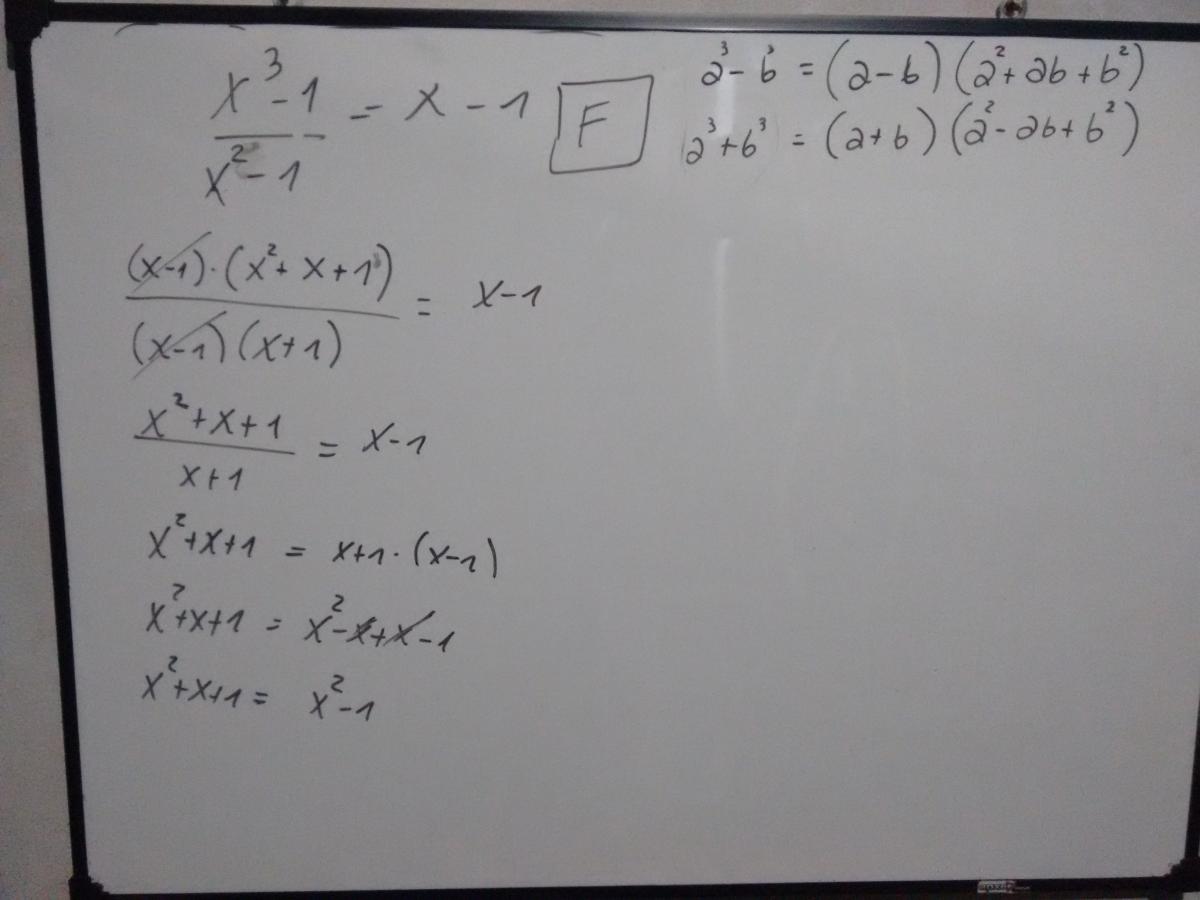 x³-1 / x²-1 = x-1 F
a³-b³ = (a-b)(a²+ab+b²)
a³+b³ = (a+b)(a²-ab+b²)
(x-1)·(x²+x+1) / (x-1)(x+1) = x-1
x²+x+1 / x+1 = x-1
x²+x+1 = x+1·(x-1)
x²+x+1 = x²-x+x-1
x²+x+1 = x²-1